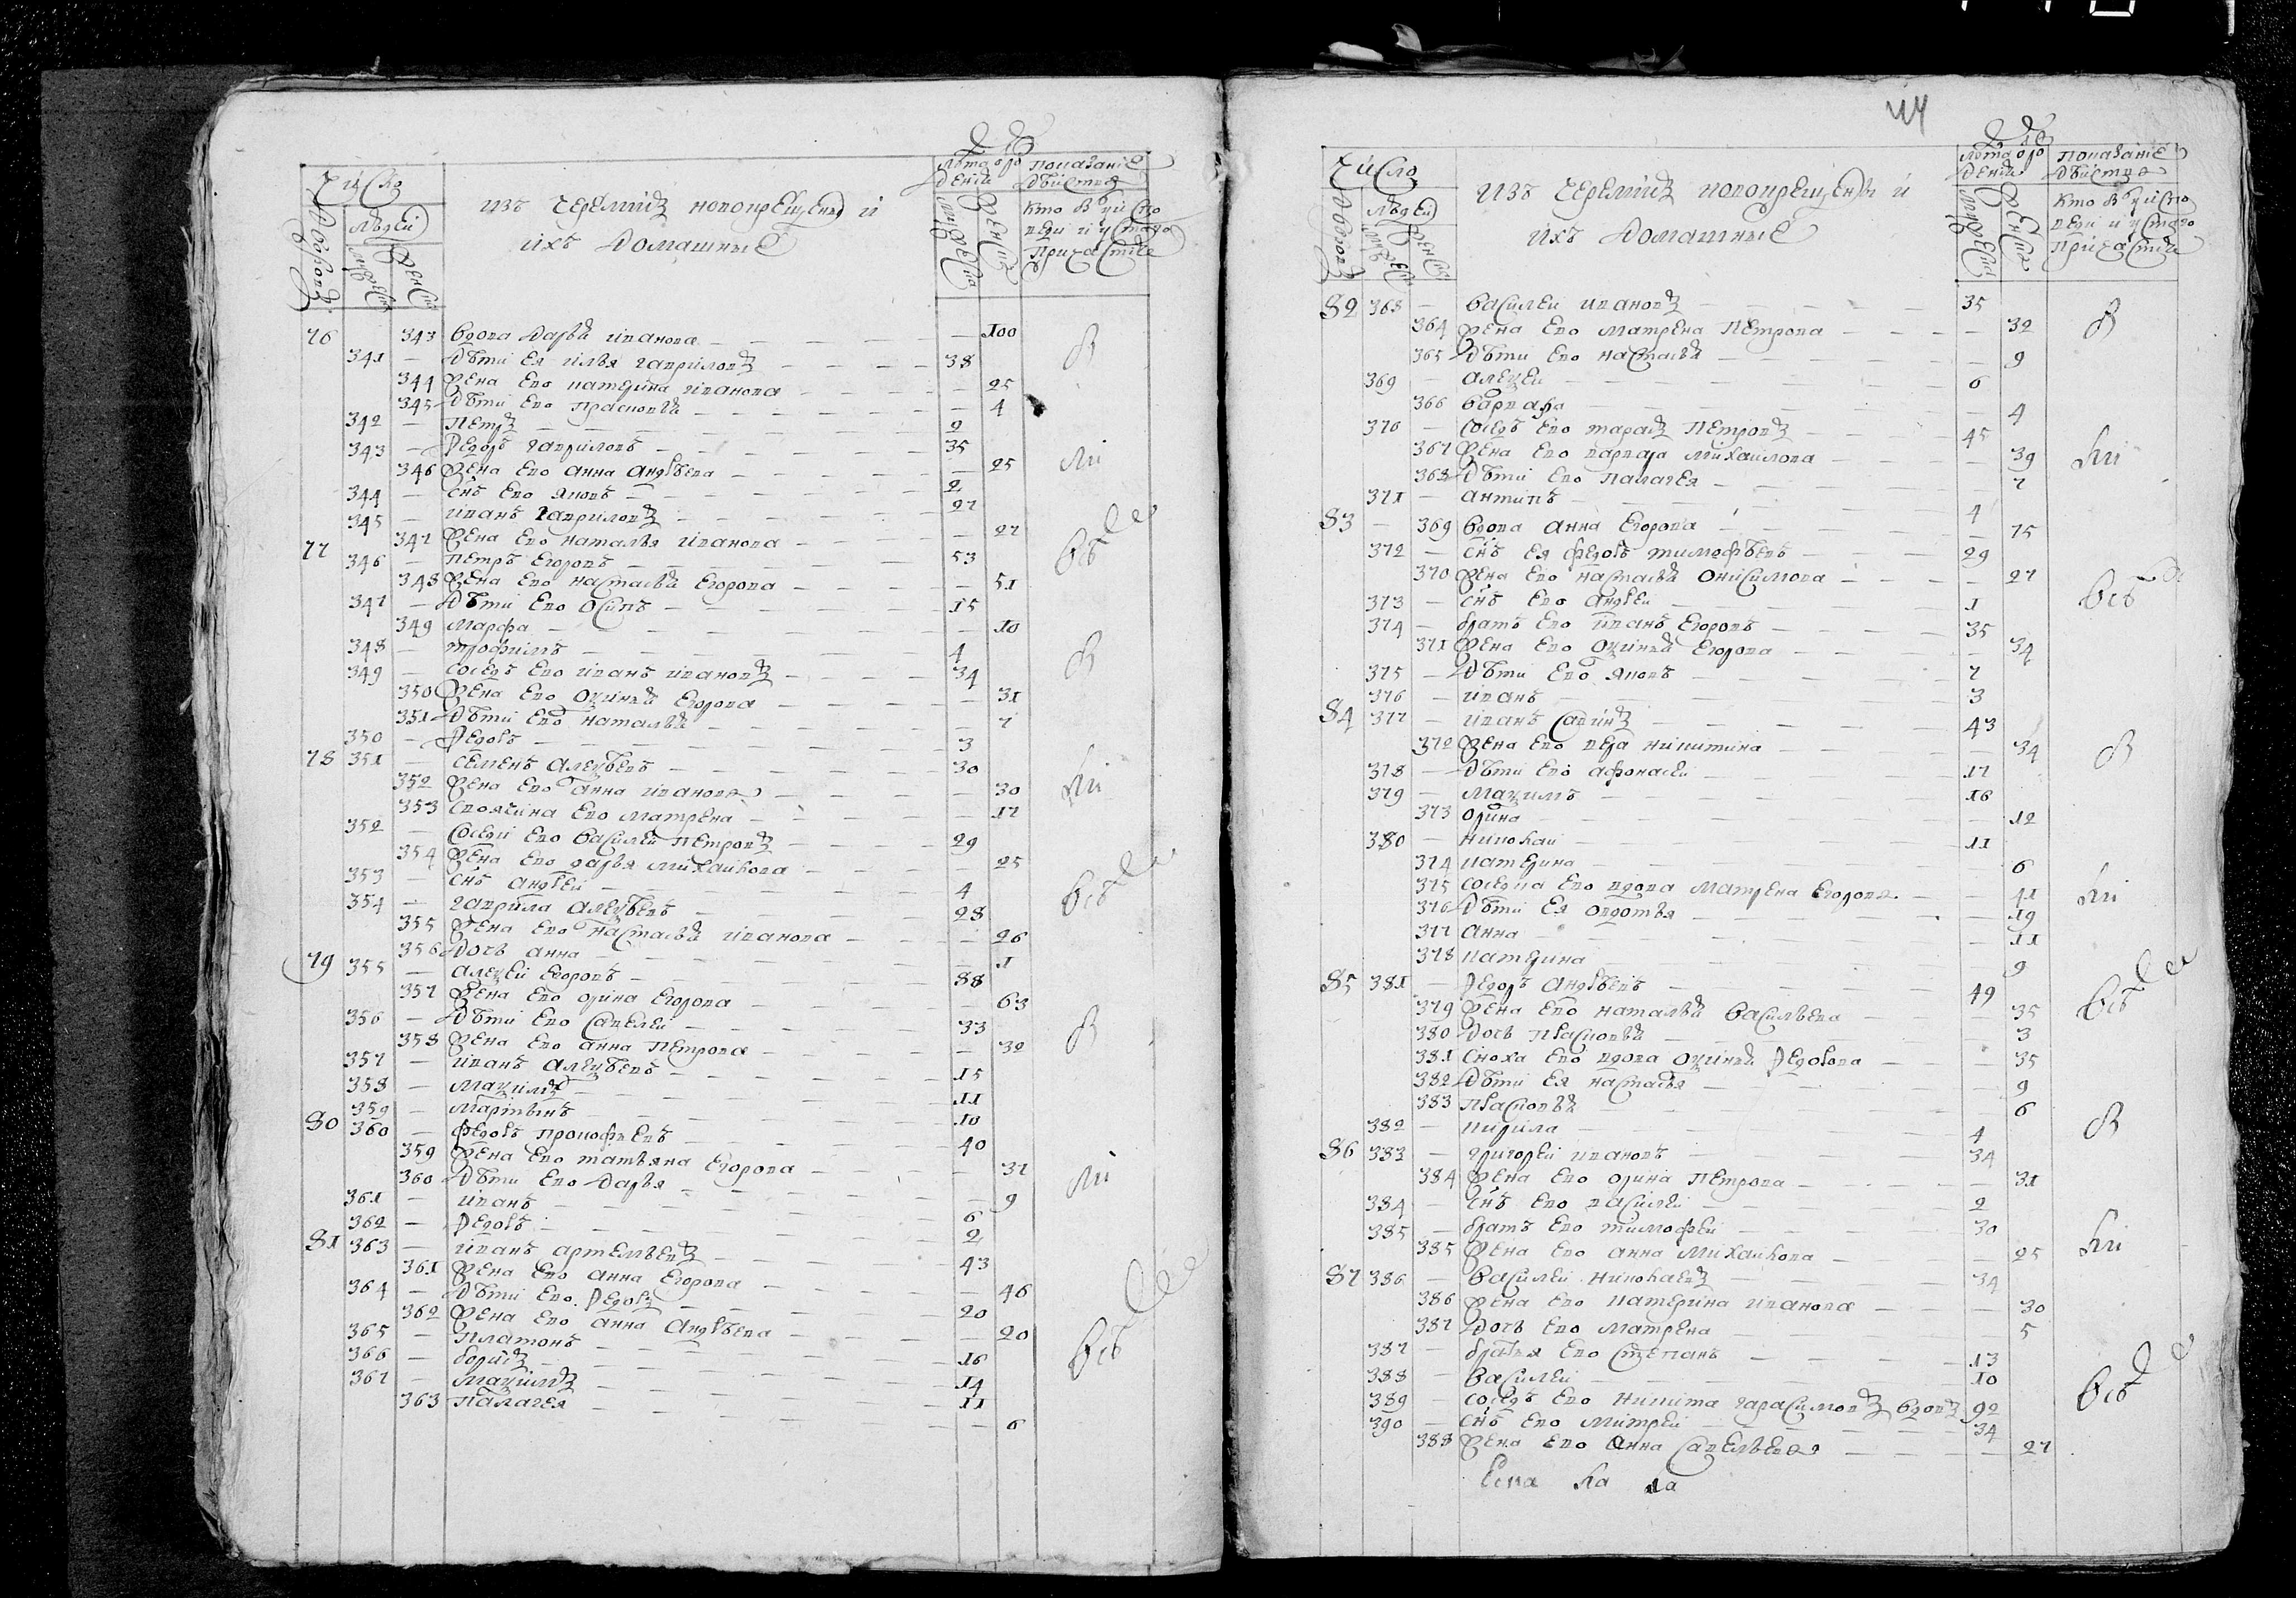 Число
Дворовъ
Людей
Мужеска
Женска
изъ черемисъ новокрещены и
ихъ домашные
Лѣта отро
дения
Мужеска
Женска
Показание
дѣиства
Кто былъ у испо
веди и у святаго
причастия
76 343 вдова дарья иванова 100
341 дѣти ея илья гавриловъ 38
344 жена ево катерина иванова 25
345 дѣти ево прасковья 4
342 Петръ 2
343 Федоръ гавриловъ 35
346 жена ево анна андрѣева 25
344 снъ ево яковъ 2
345 иванъ гавриловъ 27
347 жена ево наталья иванова 27
77 346 петръ егоровъ 53
348 жена ево настасья егорова 51
347 дѣти ево осипъ 15
349 марфа 10
348 трофимъ 4
349 соседъ ево иванъ ивановъ 34
350 жена ево оксинья егорова 31
351 дѣти ево наталья 7
350 Федоръ 3
78 351 семенъ алексѣевъ 30
352 жена ево анна иванова 30
353 своячина ево матрена 17
352 соседи ево василеи петровъ 29
354 жена ево дарья михаилова 25
353 снъ андреи 4
354 гаврила алексѣевъ 28
355 жена ево настасья иванова 26
356 дочь анна 1
79 355 алексеи егоровъ 88
357 жена ево орина егорова 63
356 дѣти ево савелеи 33
358 жена ево анна петрова 32
357 иванъ алексѣевъ 15
358 максимъ 11
359 мартынъ 10
80 360 федоръ прокофьевъ 40
359 жена ево татьяна егорова 37
360 дѣти ево дарья 9
361 иванъ 6
362 Федоръ 2
81 363 иванъ артемьевъ 43
361 жена ево анна егорова 46
364 дѣти ево Федоръ 20
362 жена ево анна андрѣева 20
365 платонъ 16
366 борисъ 14
367 максимъ 11
363 палагея 6
44
Число
Дворовъ
Людей
Мужеска
Женска
изъ черемисъ новокрещены и
ихъ домашные
Лѣта отро
дения
Мужеска
Женска
Показание
дѣиства
Кто былъ у испо
веди и у святаго
причастия
82 368 василеи ивановъ 35
364 жена ево матрена петрова 32
365 дѣти ево настасья 9
369 алексеи 6
366 варвара 4
370 соседъ ево тарасъ петровъ 45
367 жена ево варвара михаилова 39
368 дѣти ево палагея 7
371 антипъ 4
83 369 вдова анна егорова 75
372 снъ ея федоръ тимофѣевъ 29
370 жена ево настасья онисимова 27
373 снъ ево андреи 1
374 братъ ево иванъ егоровъ 35
371 жена ево оксинья егорова 34
375 дѣти ево яковъ 7
376 иванъ 3
84 377 иванъ савинъ 43
372 жена ево вера никитина 34
378 дѣти ево афонасеи 17
379 максимъ 16
373 орина 12
380 николаи 11
374 катерина 6
375 соседка ево вдова матрена егорова 41
376 дѣти ея овдотья 19
377 анна 11
378 катерина 9
85 381 Федоръ андрѣевъ 49
379 жена ево наталья васильева 35
380 дочь прасковья 3
381 сноха ево вдова оксинья Федорова 35
382 дѣти ея настасья 9
383 прасковья 6
382 кирила 4
86 383 григореи ивановъ 34
384 жена ево орина петрова 31
384 снъ ево василеи 2
385 братъ ево тимофеи 30
385 жена ево анна михаилова 25
87 386 василеи николаевъ 34
386 жена ево катерина иванова 30
387 дочь ево матрена 5
387 братья ево степанъ 13
388 василеи 10
389 соседъ ево никита гарасимовъ вдовъ 92
390 снъ ево митреи 34
388 жена ево анна савельева 27